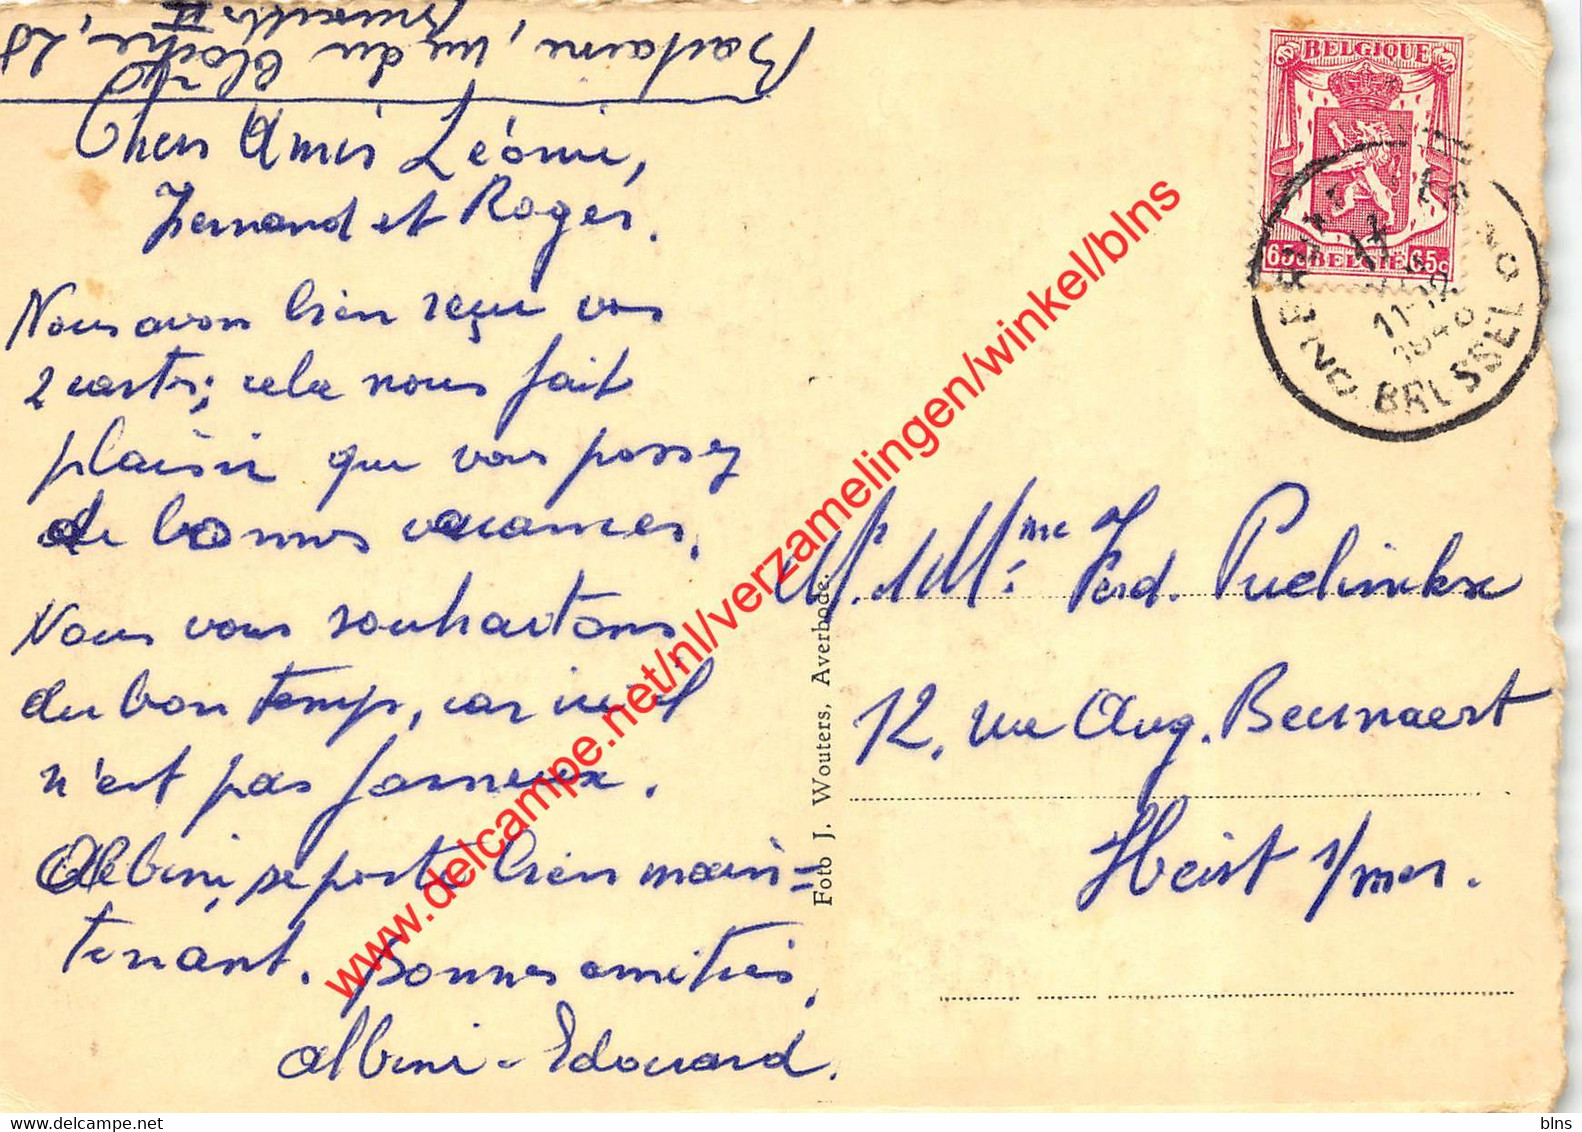 Bastaine, rue du Cloche, 28
Bruxelles II
Chers Amis Léonie,
Fernand et Roger.
Nous avon bien reçu vos
2 cartes; cela nous fait
plaisir que vous passez
de bonnes vacances.
Nous vous souhaitons
du bon temps, car ici il
n'est pas fameux.
Albini, se porte bien main=
tenant. Bonnes amitiés,
Albini - Edouard.
Foto J. Wouters, Averbode.
BELGIQUE
65c BELGIË 65c
BRUSSEL
11-12
1948
Mr. & Mme Ferd. Puelinckx
12, rue Aug. Beernaert
Heist s/mer.
www.delcampe.net/nl/verzamelingen/winkel/blns
blns